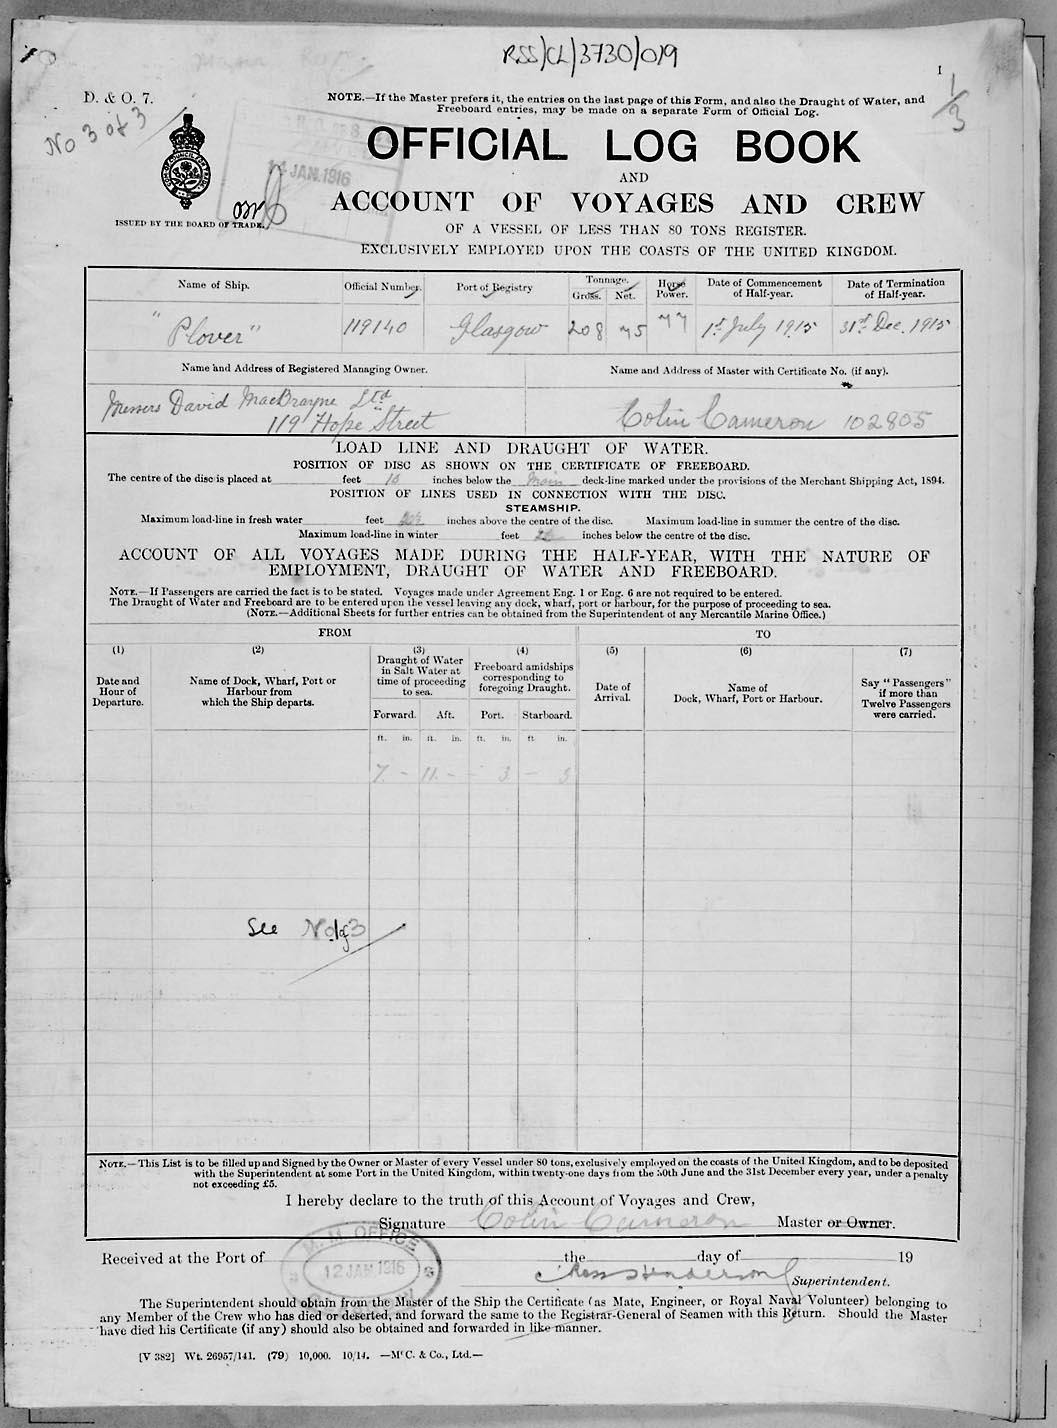 RSS/CL/3730/019
1
D. & O. 7.
No 3 of 3
1/3
NOTE.—If the Master prefers it, the entries on the last page of this Form, and also the Draught of Water, and
Freeboard entries, may be made on a separate Form of Official Log.
14 JAN. 1916
OFFICIAL LOG BOOK
AND
ACCOUNT OF VOYAGES AND CREW
ISSUED BY THE BOARD OF TRADE.
OF A VESSEL OF LESS THAN 80 TONS REGISTER.
EXCLUSIVELY EMPLOYED UPON THE COASTS OF THE UNITED KINGDOM.
Name of Ship. Official Number. Port of Registry Tonnage. Gross. Net. Horse Power. Date of Commencement of Half-year. Date of Termination of Half-year.
"Plover" 119140 Glasgow 208 75 77 1st July 1915 31st Dec. 1915
Name and Address of Registered Managing Owner. Name and Address of Master with Certificate No. (if any).
Messrs David MacBrayne Ltd
119 Hope Street Colin Cameron 102805
LOAD LINE AND DRAUGHT OF WATER.
POSITION OF DISC AS SHOWN ON THE CERTIFICATE OF FREEBOARD.
The centre of the disc is placed at feet inches below the Main deck-line marked under the provisions of the Merchant Shipping Act, 1894.
POSITION OF LINES USED IN CONNECTION WITH THE DISC.
STEAMSHIP.
Maximum load-line in fresh water feet inches above the centre of the disc. Maximum load-line in summer the centre of the disc.
Maximum load-line in winter feet inches below the centre of the disc.
ACCOUNT OF ALL VOYAGES MADE DURING THE HALF-YEAR, WITH THE NATURE OF
EMPLOYMENT, DRAUGHT OF WATER AND FREEBOARD.
NOTE.—If Passengers are carried the fact is to be stated. Voyages made under Agreement Eng. 1 or Eng. 6 are not required to be entered.
The Draught of Water and Freeboard are to be entered upon the vessel leaving any dock, wharf, port or harbour, for the purpose of proceeding to sea.
(NOTE.—Additional Sheets for further entries can be obtained from the Superintendent of any Mercantile Marine Office.)
FROM TO
(1) (2) (3) (4) (5) (6) (7)
Date and Hour of Departure.
Name of Dock, Wharf, Port or Harbour from which the Ship departs.
Draught of Water in Salt Water at time of proceeding to sea.
Freeboard amidships corresponding to foregoing Draught.
Date of Arrival.
Name of Dock, Wharf, Port or Harbour.
Say "Passengers" if more than Twelve Passengers were carried.
Forward. Aft. Port. Starboard.
ft. in. ft. in. ft. in. ft. in.
7. - 11. - - 3 - 3
See No 1 of 3
NOTE.—This List is to be filled up and Signed by the Owner or Master of every Vessel under 80 tons, exclusively employed on the coasts of the United Kingdom, and to be deposited
with the Superintendent at some Port in the United Kingdom, within twenty-one days from the 30th June and the 31st December every year, under a penalty
not exceeding £5.
I hereby declare to the truth of this Account of Voyages and Crew,
Signature Colin Cameron Master or Owner.
M.M. OFFICE
12 JAN 1916
Received at the Port of the day of 19
Superintendent.
The Superintendent should obtain from the Master of the Ship the Certificate (as Mate, Engineer, or Royal Naval Volunteer) belonging to
any Member of the Crew who has died or deserted, and forward the same to the Registrar-General of Seamen with this Return. Should the Master
have died his Certificate (if any) should also be obtained and forwarded in like manner.
[V 382] Wt. 26957/141. (79) 10,000. 10/14. —McC. & Co., Ltd.—